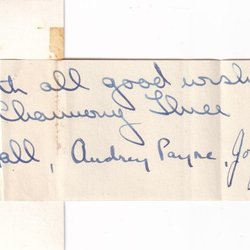 th all good wish
Charmony Three
all, Audrey Payne, Jo